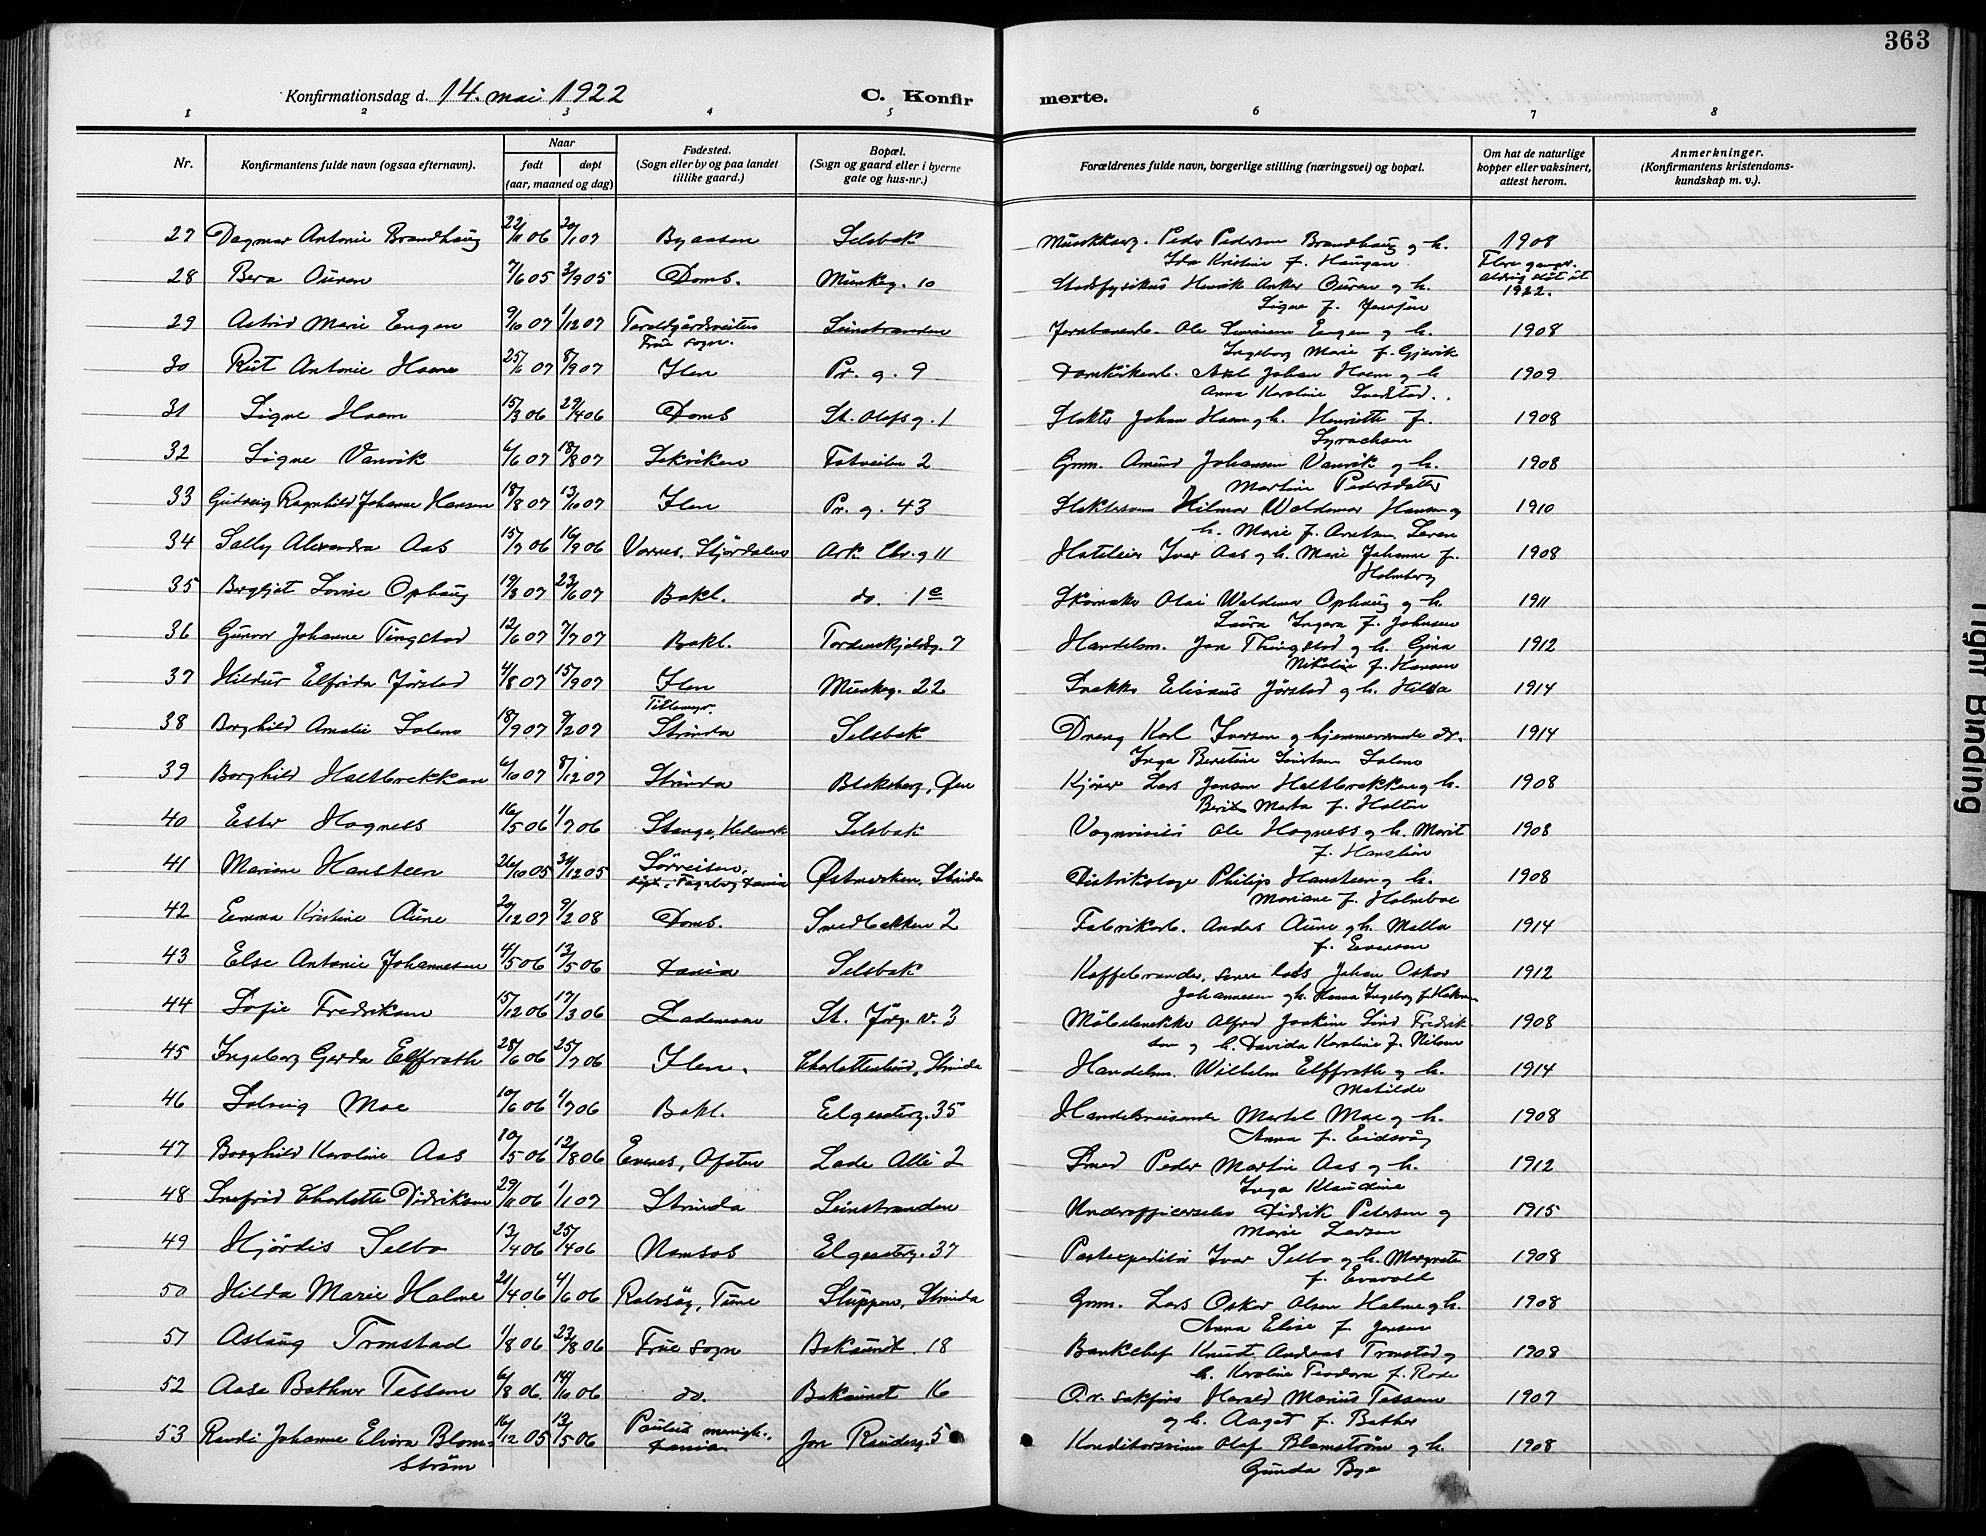 363
Konfirmationsdag d. 14. mai 1922
C. Konfirmerte.
1 2 3 4 5 6 7 8
Nr. Konfirmantens fulde navn (ogsaa efternavn). Naar født døpt (aar, maaned og dag) Fødested. (Sogn eller by og paa landet tillike gaard.) Bopæl. (Sogn og gaard eller i byerne gate og hus-nr.) Forældrenes fulde navn, borgerlige stilling (næringsvei) og bopæl. Om hat de naturlige kopper eller vaksinert, attest herom. Anmerkninger. (Konfirmantens kristendomskundskap m. v.).
27 Dagmar Antonie Brandhaug 22/11 06 20/1 07 Byaasen Selsbak Murikarb. Peder Pedersen Brandhaug og h. 1908
Ida Kristine f. Haugan
28 Bera Ouren 7/6 05 3/9 05 Domk. Munkeg. 10 Stadsfysikus Henrik Anker Ouren og h. Flere ganger aldrig slåt ut 1922.
Signe f. Jenssen
29 Astrid Marie Engen 9/10 07 1/12 07 Taraldgårdsveiten Leinstranden Jernbanearb. Ole Sivertsen Engen og h. 1908
Frue sogn. Ingeborg Marie f. Gjervik
30 Rut Antonie Hoem 25/6 07 8/9 07 Ilen Pr. g. 9 Domkirkearb. Axel Johan Hoem og h. 1909
Anna Karoline
31 Signe Hoem 15/3 06 29/4 06 Domk St. Olafs g. 1 Slakter Johan Hoem og h. Henriette f. 1908
Syrachsen
32 Signe Vanvik 6/6 07 18/8 07 Lekviken Totveiten 2 Grm. Amund Johansen Vanvik og h. 1908
Martine Pedersdatter
33 Gudveig Ragnhild Johanne Hansen 18/8 07 13/10 07 Ilen Pr. g. 43 Slaktersvend Hilmar Waldemar Hansen og 1910
h. Marie f. Arntsen
34 Sally Alexandra Aas 15/7 06 16/9 06 Værnes, Stjørdalen Ark. Chr. g 11 Ivar Aas og h. Marie Johanne f. 1908
Holmberg
35 Bergljot Lovise Ophaug 19/3 07 23/6 07 Bakl. do. 1e Skomaker Olai Waldemar Ophaug og h. 1911
Laura Ingera f. Johnsen
36 Gunvor Johanne Tingstad 12/6 07 7/7 07 Bakl. Tordenskjoldsg. 7 Handelsm. Jon Thingstad og h. Gina 1912
Nikoline f. Hansen
37 Hildur Elfrida Jørstad 4/8 07 15/9 07 Ilen Munkeg. 22 Snekker Eliseus Jørstad og h. Hilda 1914
38 Borghild Amalie Solem 18/9 07 9/2 07 Tillermyr. Strinda Selsbak Dreng Karl Iversen og hjemmeværende dr. 1914
Inga Berntine Sivertsen Solem
39 Borghild Haltbrekken 6/10 07 8/12 07 Strinda Blakeberg, Øen Kjører Lars Jensen Haltbrekken og h. 1908
Berit Marta f. Holten
40 Ester Hogness 16/5 06 1/7 06 Stange, Hedemark Selsbak Vognvisitør Ole Hogness og h. Marit 1908
f. Hanstein
41 Mariane Hansteen 26/10 05 31/12 05 Sørreisen, Østmarken, Strinda Distriktslæge Philip Hansteen og h. 1908
Mariane f. Holmboe
42 Emma Kristine Aune 20/12 07 9/2 08 Domk. Smedbakken 2 Fabrikarb. Anders Aune og h. Malla 1914
f. Evensen
43 Else Antonie Johannesen 4/5 06 13/5 06 Dania Selsbak Kaffebrander, senere lods Johan Oskar 1912
Johannesen og h. Hanna Ingeborg f. Hakonsen
44 Sofie Fredriksen 15/12 06 17/3 06 Lademoen St. Jørg. v. 3 Møbelsnekker Alfred Joakim Lind Fredrik- 1908
sen og h. Davida Karoline f. Nilsen
45 Ingeborg Gerda Elffrath 28/6 06 25/7 06 Ilen. Charlottenlund, Strinda Handelsm. Wilhelm Elffrath og h. 1914
Matilde
46 Solveig Moe 10/6 06 1/7 06 Bakl. Elgesæterg. 35 Handelsreisende Martel Moe og h. 1908
Anna f. Eidsvåg
47 Borghild Karoline Aas 10/5 06 12/8 06 Evenes, Ofoten Lade Allé 2 Smed Peder Martin Aas og h. 1912
Inga Klaudine
48 Snefrid Charlotte Didriksen 29/11 06 1/1 07 Strinda Leinstranden Underofficerselev Didrik Petersen og 1915
Marie Larsen
49 Hjørdis Selbo 13/4 06 25/4 06 Namsos Elgesæterg. 37 Postexpeditør Ivar Selbo og h. Margrete 1908
f. Evavold
50 Hilda Marie Holme 21/4 06 4/6 06 Rolvsøy, Tune Sluppen, Strinda Grm. Lars Oskar Olsen Holme og h. 1908
Anna Elise f. Jensen
51 Aslaug Tronstad 1/8 06 23/8 06 Frue sogn Baksundt. 18 Bankchef Knut Andreas Tronstad og 1908
h. Karoline Teodora f. Rode
52 Aase Bather Tessem 6/8 06 14/10 06 do. Baksundt 16 O.r. sakfører Harald Marius Tessem 1907
og h. Aagot f. Bather
53 Randi Johanne Elvira Blom- 16/12 05 13/5 06 Paulus menigh., Dania Jon Raudesg. 5 Konditorsvend Olaf Blomstrøm og h. 1908
strøm Gunda Bye
Tight Binding